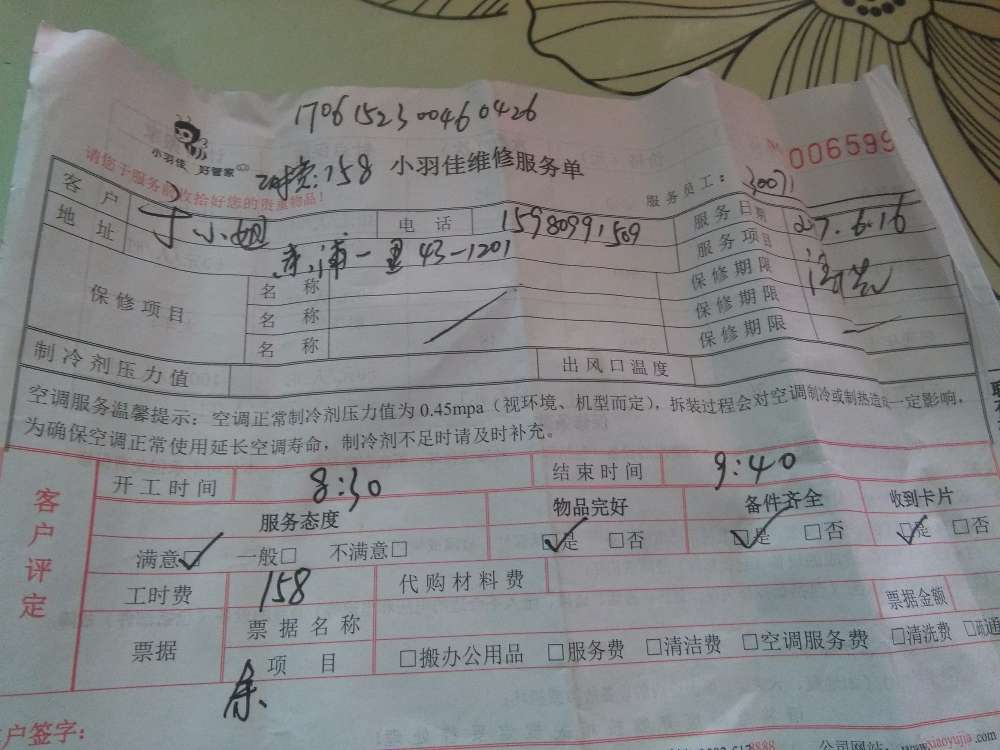 1706152300460426
小羽佳 好管家
158 小羽佳维修服务单
006599
请您于服务前收拾好您的贵重物品!
服务员工: 30071
客户 丁小姐 电话 15980991509 服务日期 2017.6.16
地址 莲浦一里43-1201 服务项目
保修项目 名称 保修期限
名称 保修期限
名称 保修期限
制冷剂压力值 出风口温度
空调服务温馨提示:空调正常制冷剂压力值为0.45mpa(视环境、机型而定),拆装过程会对空调制冷或制热造成一定影响,
为确保空调正常使用延长空调寿命,制冷剂不足时请及时补充。
客户评定
开工时间 8:30 结束时间 9:40
服务态度 物品完好 备件齐全 收到卡片
满意□ 一般□ 不满意□ □是 □否 □是 □否 □是 □否
工时费 158 代购材料费
票据 票据名称 票据金额
项目 □搬办公用品 □服务费 □清洁费 □空调服务费 □清洗费 □疏通
余
客户签字:
公司网站:www.xiaoyujia.com